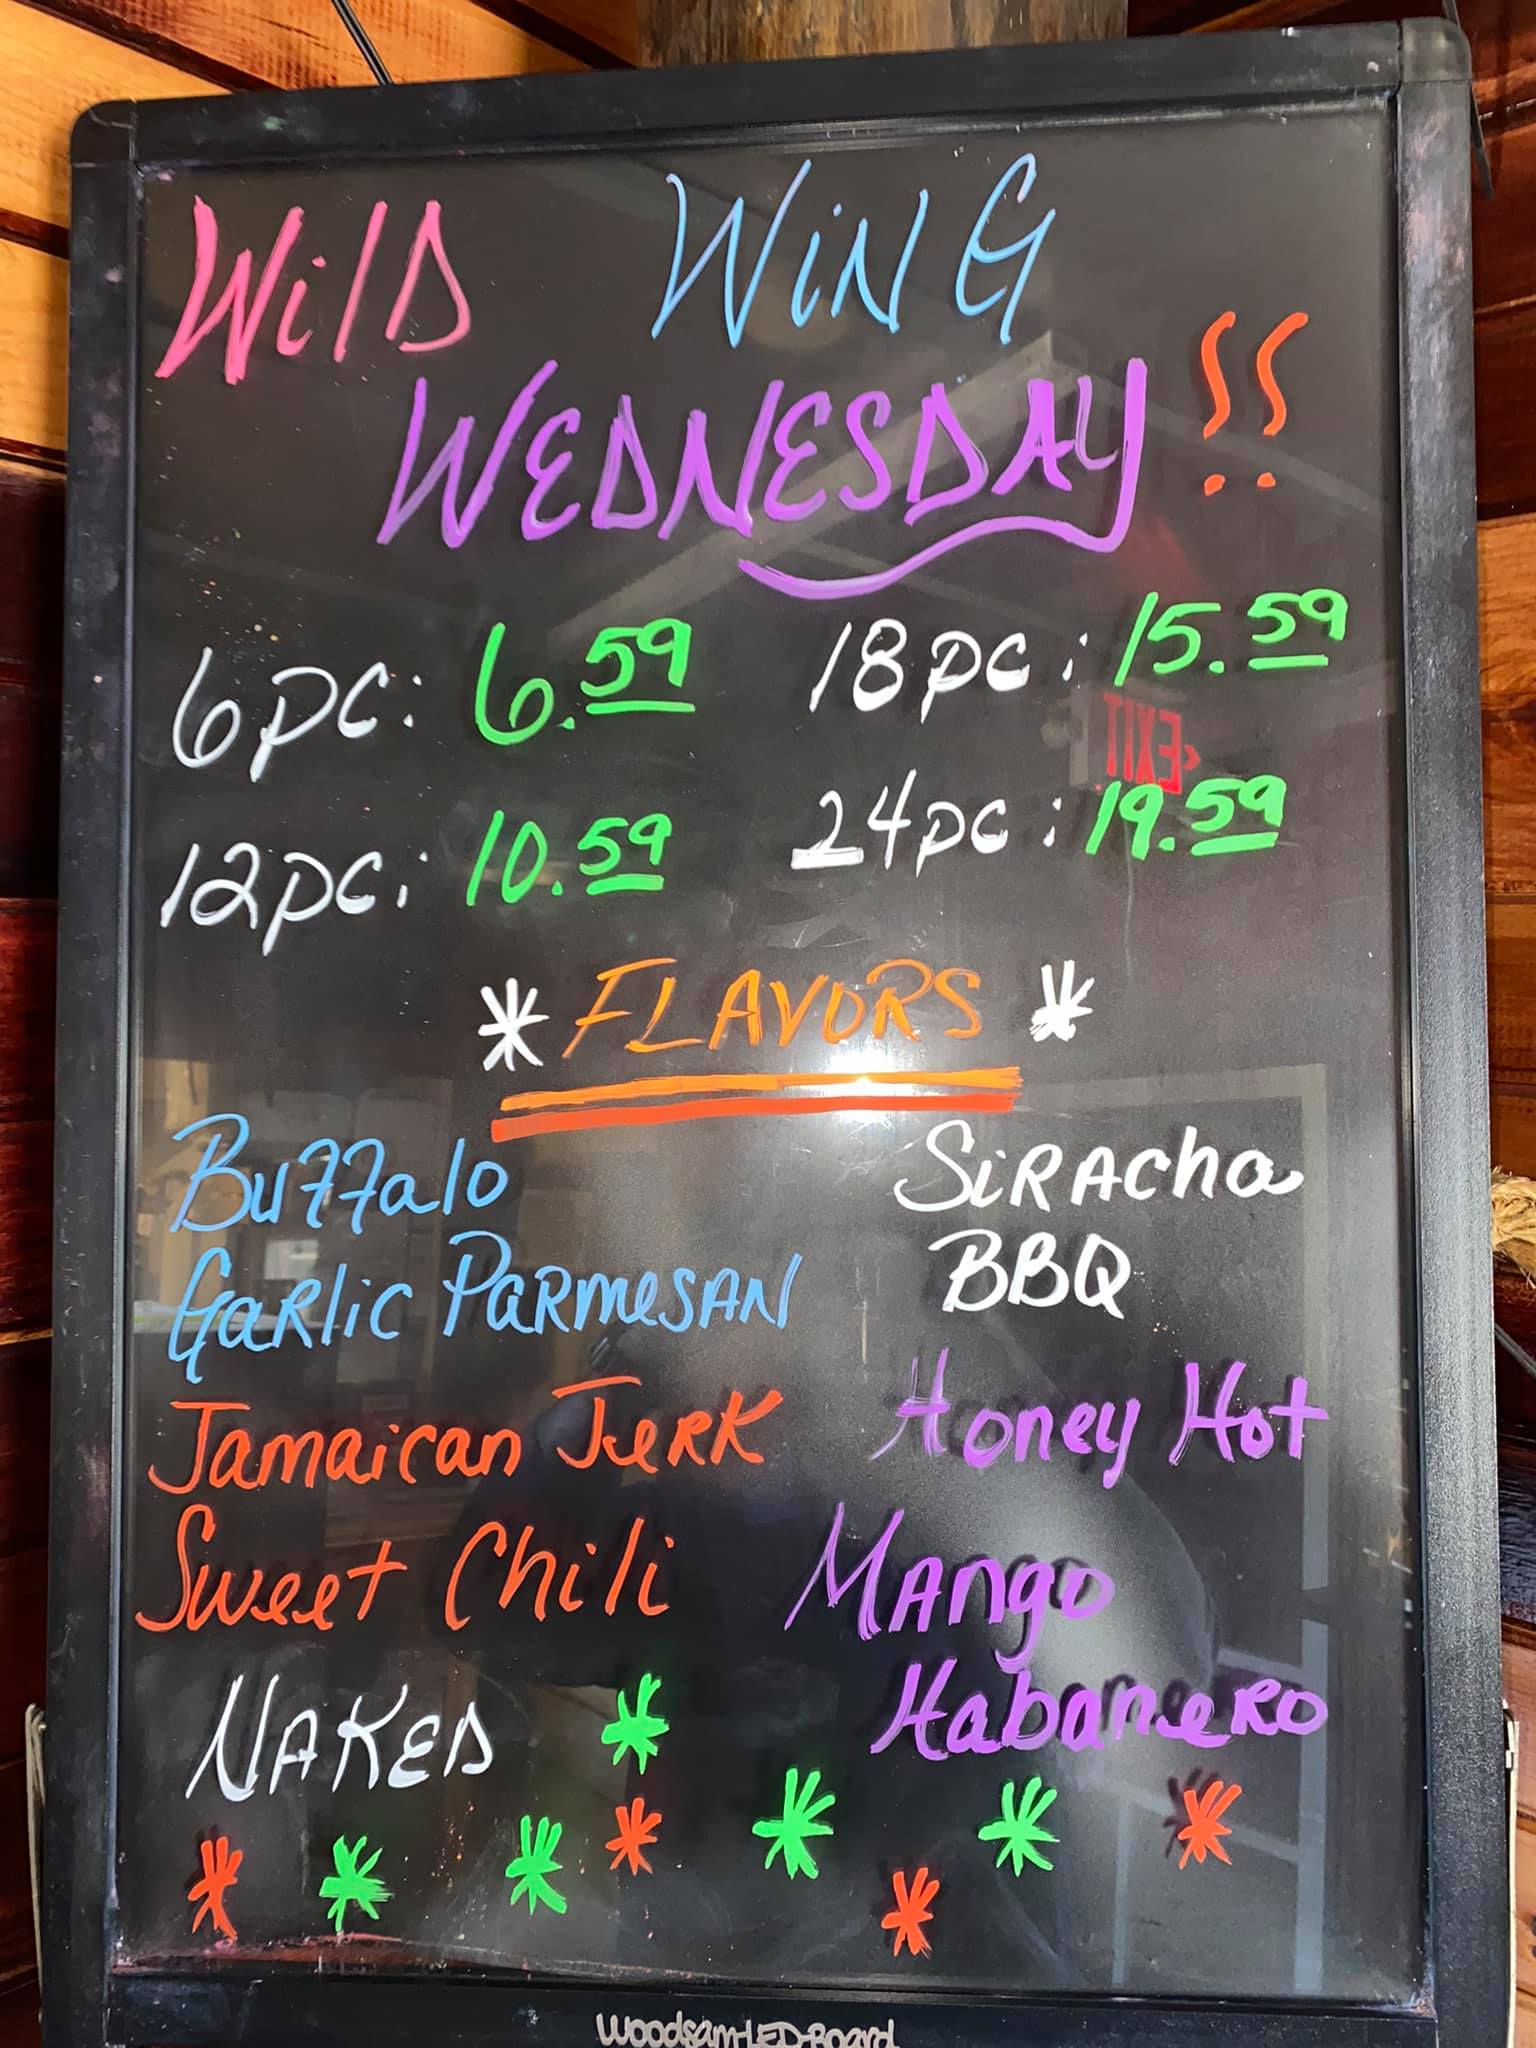 Wild WiNG
WEDNESDAY !!
6pc: 6.59
18pc: 15.59
12pc: 10.59
24pc: 19.59
* FLAVORS *
Buffalo
Garlic Parmesan
Jamaican Jerk
Sweet Chili
NAKED
SiRAcha
BBQ
Honey Hot
Mango
Habanero
EXIT
Woodsam-LED-Board